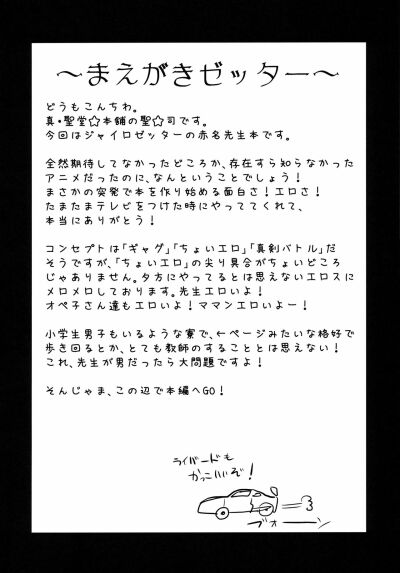 ～まえがきゼッター～
どうもこんちわ。
真・聖堂☆本舗の聖☆司です。
今回はジャイロゼッターの赤名先生本です。
全然期待してなかったどころか、存在すら知らなかった
アニメだったのに、なんということでしょう！
まさかの突発で本を作り始める面白さ！エロさ！
たまたまテレビをつけた時にやっててくれて、
本当にありがとう！
コンセプトは「ギャグ」「ちょいエロ」「真剣バトル」だ
そうですが、「ちょいエロ」の尖り具合がちょいどころ
じゃありません。夕方にやってるとは思えないエロスに
メロメロしております。先生エロいよ！
オペ子さん達もエロいよ！ママンエロいよー！
小学生男子もいるような寮で、←ページみたいな格好で
歩き回るとか、とても教師のすることとは思えない！
これ、先生が男だったら大問題ですよ！
そんじゃま、この辺で本編へGO！
ライバードも
かっこいいぞ！
ブォーン